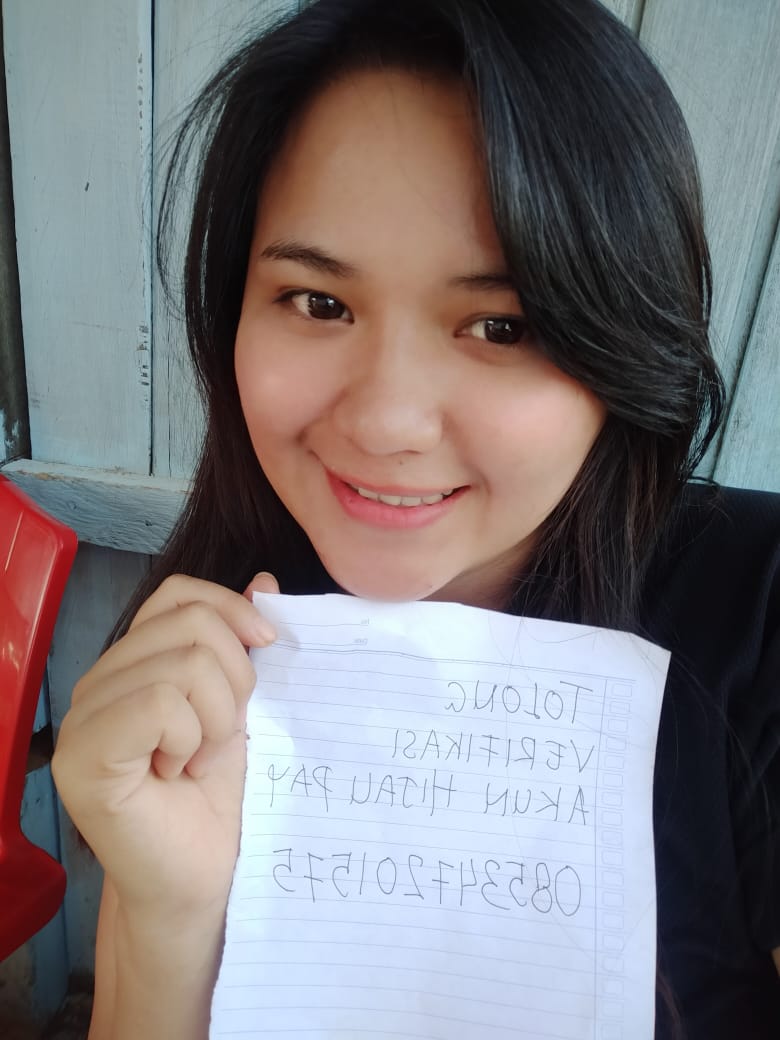 No.
Date
TOLONG
VERIFIKASI
AKUN HIJAU PAY
085347201575